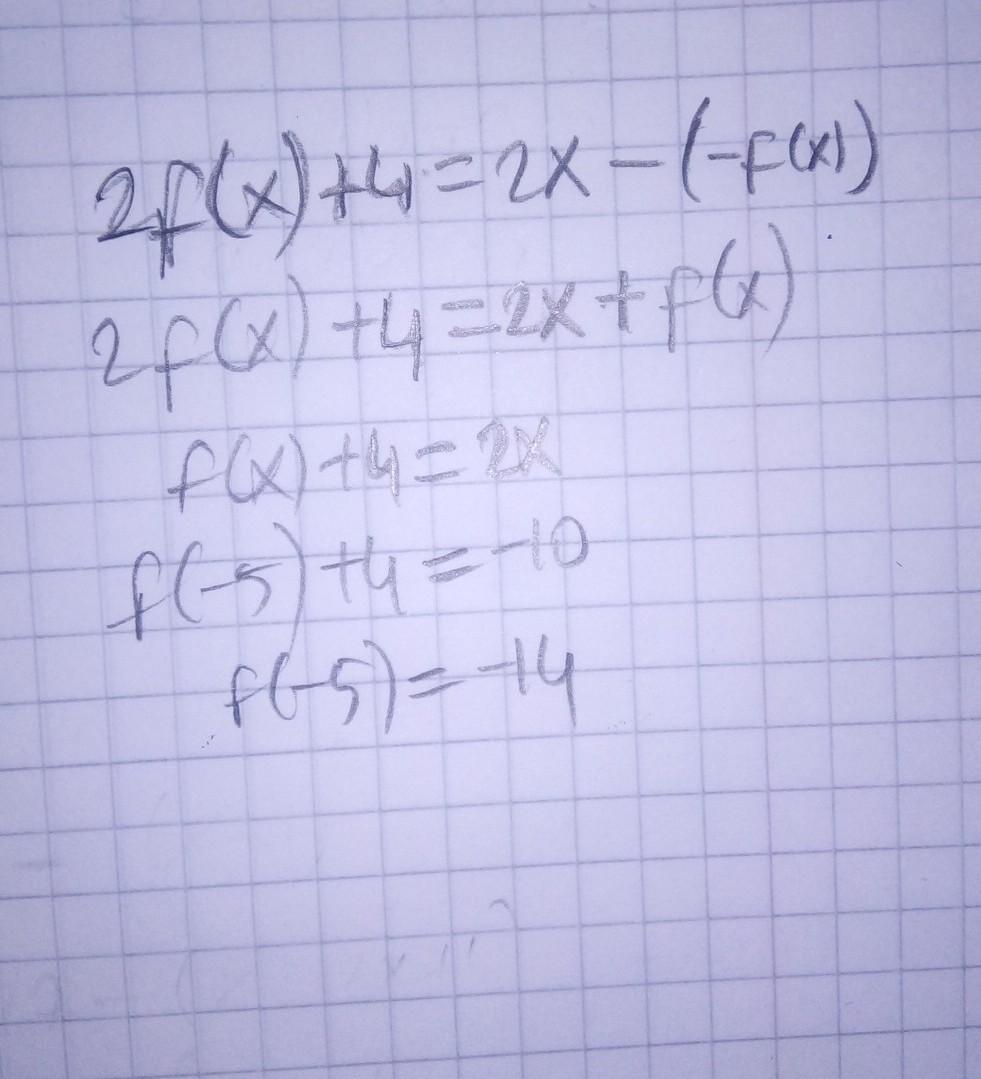 2f(x)+4=2x-(-f(x))
2f(x)+4=2x+f(x)
f(x)+4=2x
f(-5)+4=-10
f(-5)=-14